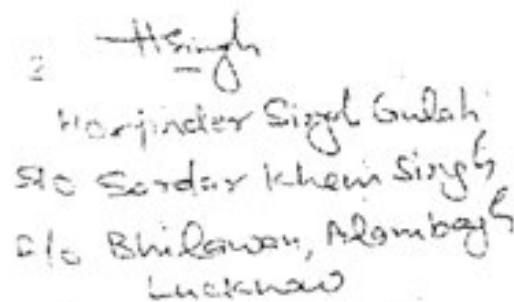 2 HSingh
Harjinder Singh Gulati
S/o Sardar Khem Singh
R/o Bhilawan, Alambagh
Lucknow